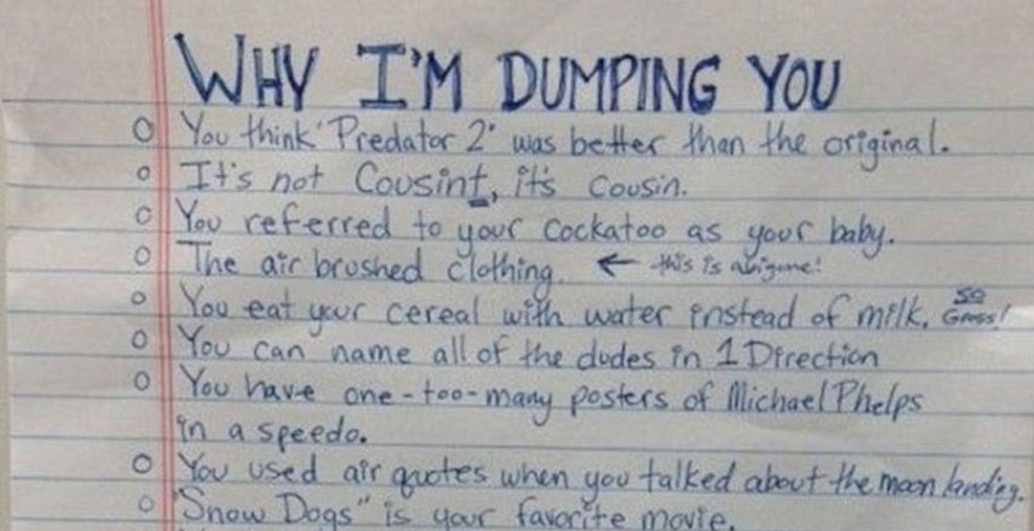 WHY I'M DUMPING YOU
You think "Predator 2" was better than the original.
It's not Cousint, it's Cousin.
You referred to your cockatoo as your baby.
The air brushed clothing. ← this is a biggone!
You eat your cereal with water instead of milk. SO Gross!
You can name all of the dudes in 1 Direction
You have one-too-many posters of Michael Phelps
in a speedo.
You used air quotes when you talked about the moon landing.
"Snow Dogs" is your favorite movie.